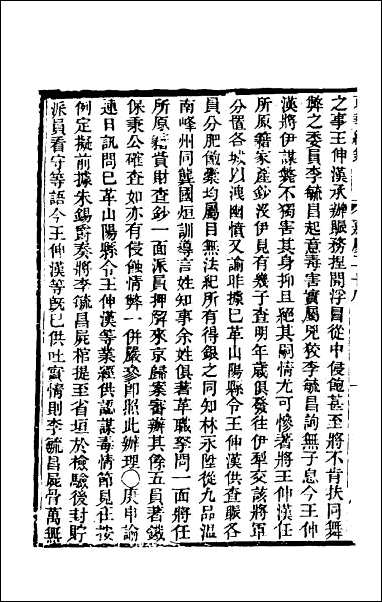 之事王伸漢承辦賑務揑開浮冒從中侵飽甚至將不肯扶同舞
弊之委員李毓昌起意毒害實屬兇狡李毓昌詢無子息今王伸
漢將伊謀斃不獨害其身抑且絕其嗣情尤可慘著將王伸漢任
所原籍家產鈔沒伊見有幾子查明年歲俱發往伊犁交該將軍
分置各城以洩幽憤又諭昨據已革山陽縣令王伸漢供查賑各
員分肥做槖均屬目無法紀所有得銀之同知林永陞從九品溫
南峰州同龔國烜訓導言姓知事余姓俱著革職拏問一面將任
所原籍貲財查鈔一面派員押解來京歸案審辦其餘五員著鐵
保秉公確查如亦有侵蝕情弊一併嚴參卽照此辦理〇庚申諭
連日訊問已革山陽縣令王伸漢等業經供認謀毒情節見在按
例定擬前據朱錫爵奏將李毓昌屍棺提至省垣於檢驗後封貯
派員看守等語今王伸漢等旣已供吐實情則李毓昌屍骨萬無